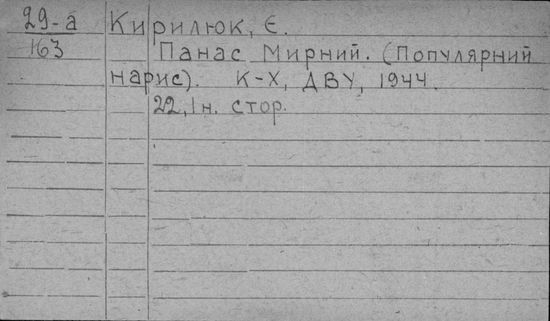 29-а Кирилюк, Є.
163 Панас Мирний. (Популярний
нарис). К-Х, ДВУ, 1944.
22, 1 н. стор.